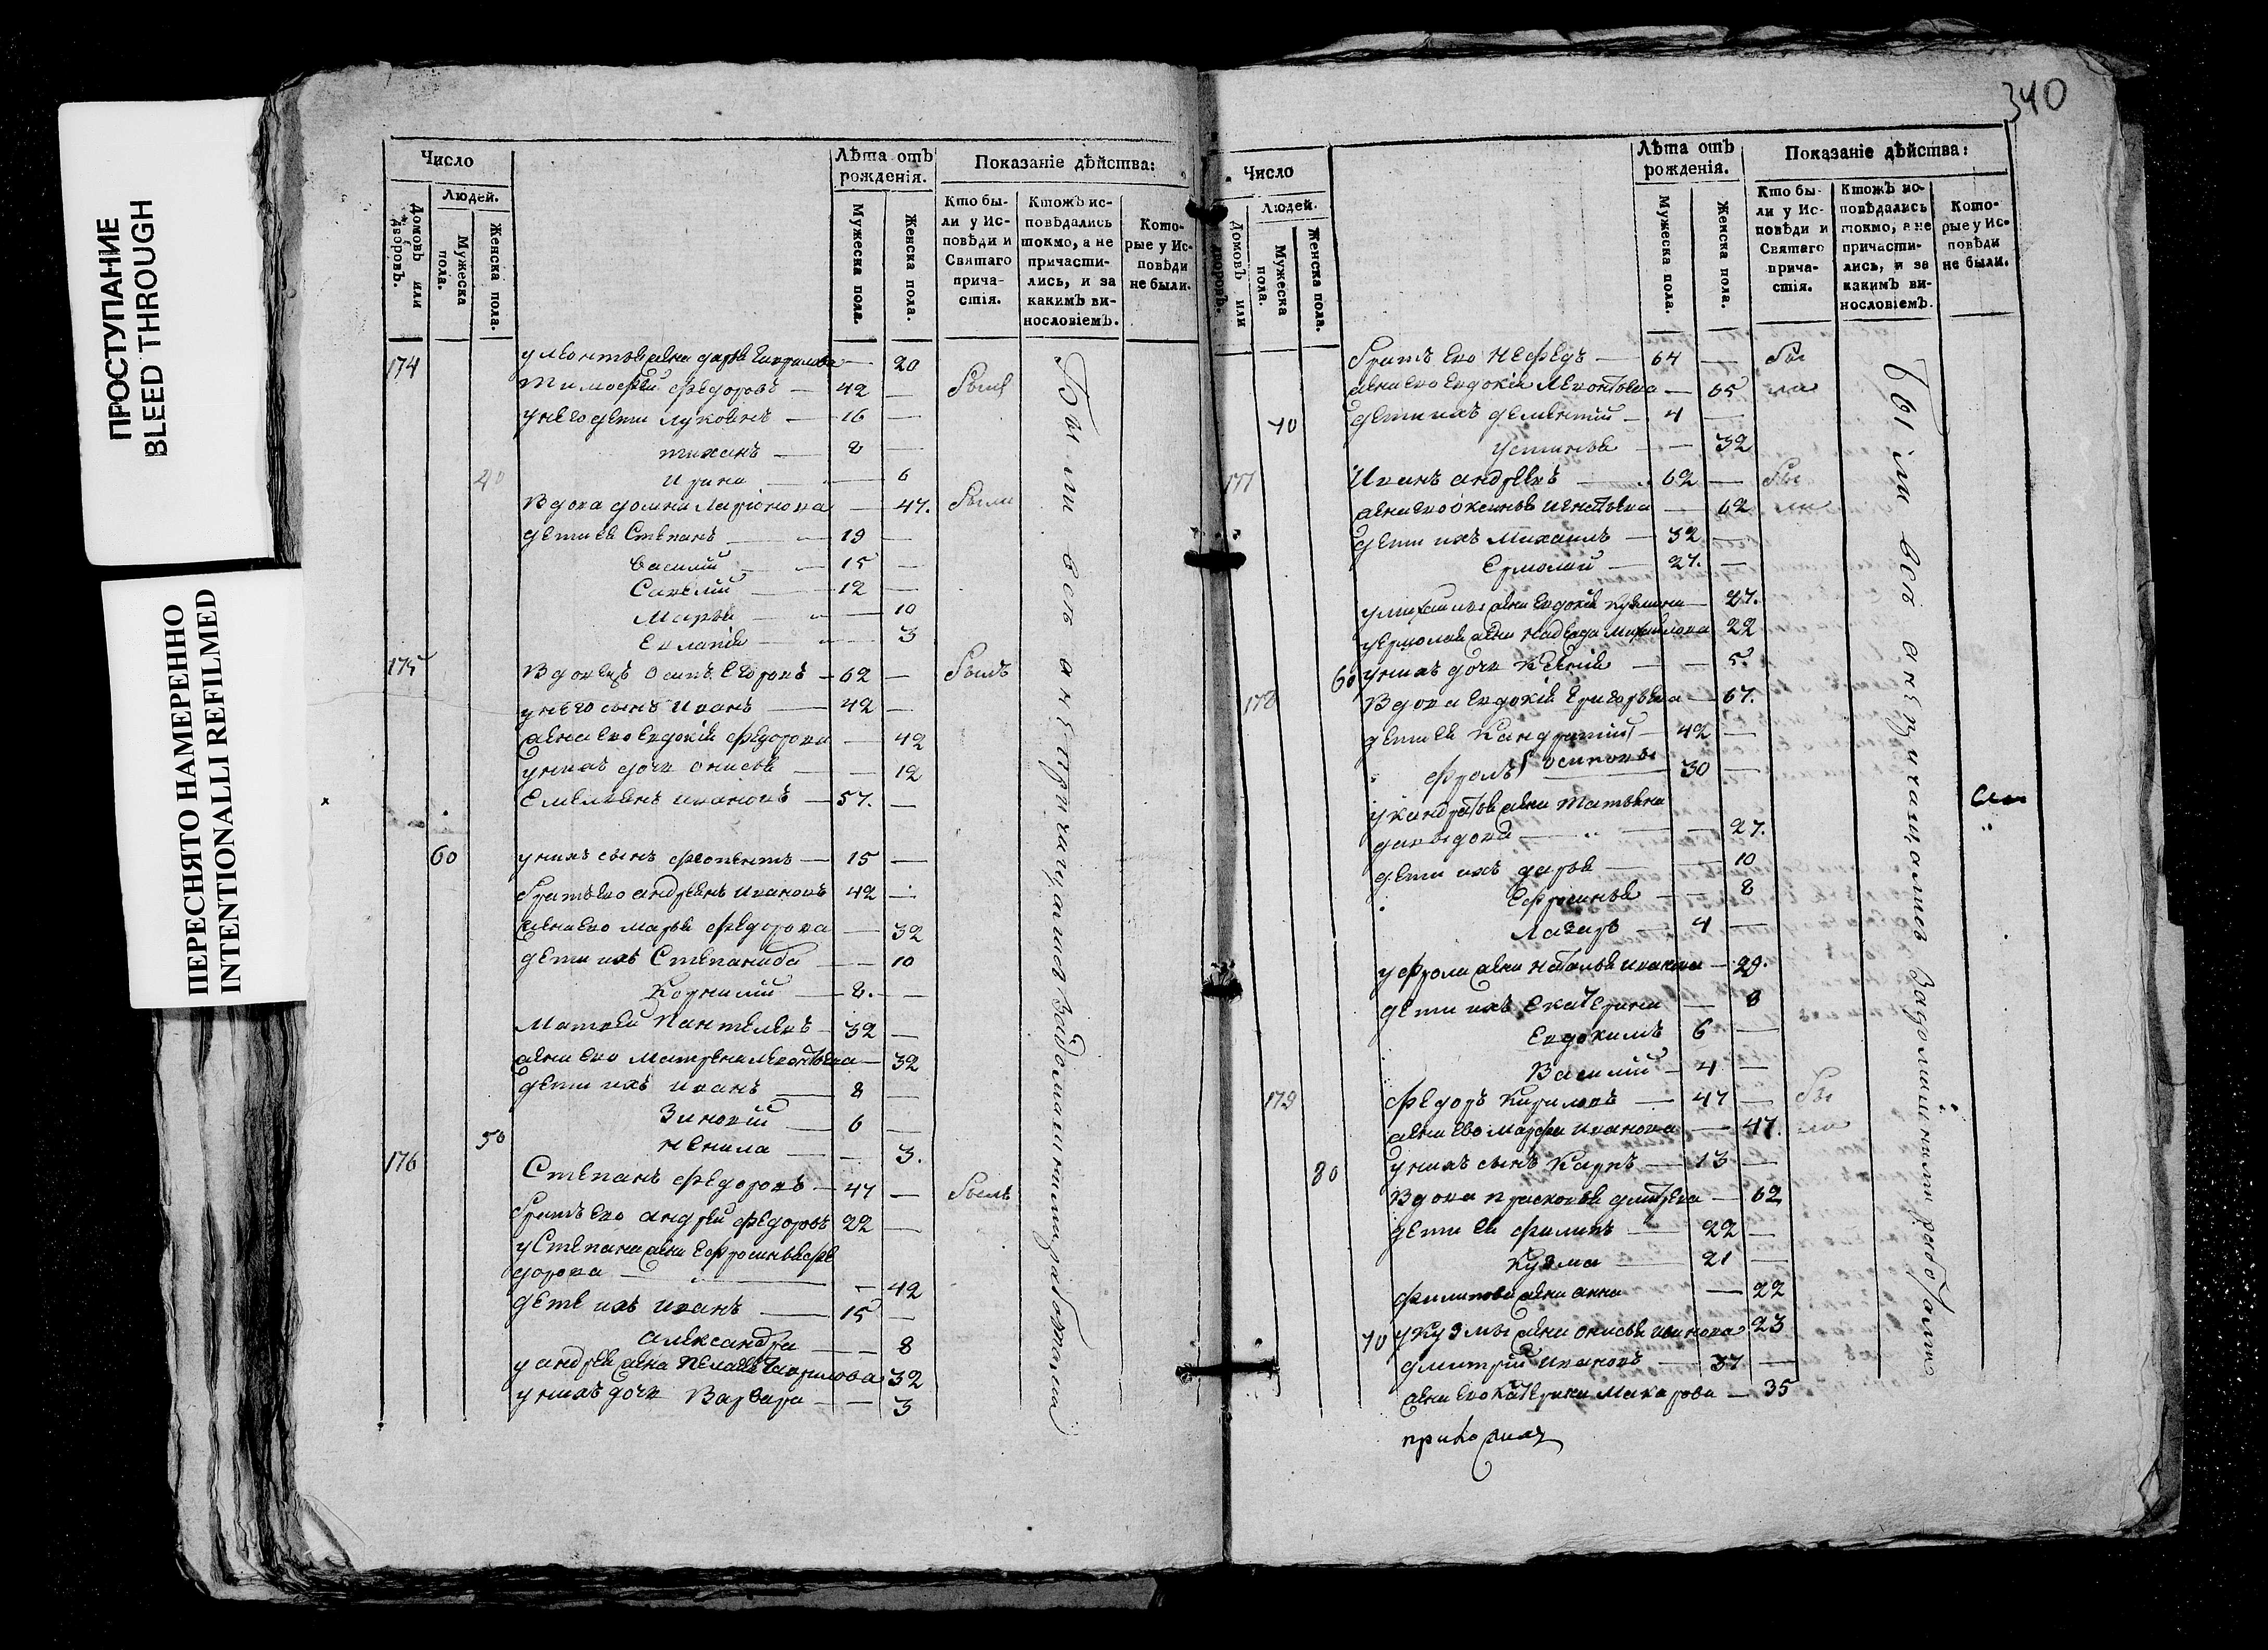 ПРОСТУПАНИЕ
BLEED THROUGH
ПЕРЕСНЯТО НАМЕРЕННО
INTENTIONALLI REFILMED
Число
Людей.
Домовъ или дворовъ.
Мужеска пола.
Женска пола.
Лѣта отъ рожденія.
Мужеска пола.
Женска пола.
Показаніе дѣйства:
Кто бы-ли у Ис-повѣди и Святаго прича-стія.
Ктожъ ис-повѣдались токмо, а не причасти-лись, и за какимъ ви-нословіемъ.
Кото-рые у Ис-повѣди не были.
у леонтья жена дарья Гаврилова — 20
174 Тимофей федоровъ — 42 — были
у него дети лукоянъ — 16 —
тиханъ — 8 —
40 Ирина — 6
Вдова домна Ларионова — 47. были
дети ея Степанъ — 19 —
Василий — 15 —
Савелий — 12 —
Марья — 10
Евлапия — 3
175 Вдовецъ Осипъ Егоровъ — 62 — былъ
у него сынъ Иванъ — 42 —
жена ево евдокия федорова — 42
у нихъ дочь онисья — 12
Емельянъ ивановъ — 57. —
60 у нихъ сынъ феопентъ — 15 —
братъ ево андреянъ ивановъ 42 —
жена ево марья федорова — 32
дети ихъ Степанида — 10
Корнилий — 8. —
Матвей Пантелеевъ — 32 —
жена ево матрена леонтьева — 32
дети ихъ иванъ — 8 —
Зиновий — 6 —
50 Ненила — 3.
176 Степанъ федоровъ — 47 — былъ
братъ ево андрей федоровъ 22 —
у Степана жена Ефросинья фе
дорова — 42
дети ихъ иванъ — 15 —
александра — 8
у андрея жена Пелагея Гаврилова 32
у нихъ дочь Варвара — 3
340
Число
Людей.
Домовъ или дворовъ.
Мужеска пола.
Женска пола.
Лѣта отъ рожденія.
Мужеска пола.
Женска пола.
Показаніе дѣйства:
Кто бы-ли у Ис-повѣди и Святаго прича-стія.
Ктожъ ис-повѣдались токмо, а не причасти-лись, и за какимъ ви-нословіемъ.
Кото-рые у Ис-повѣди не были.
братъ ево Нефедъ — 64 — бы
жена ево евдокия Леонтьева — 65 ли
70 дети ихъ дементий — 4 —
устинья — 32
177 Иванъ андреевъ — 62 — бы
жена ево оксинья игнатьева — 62 ли
дети ихъ михаилъ — 32 —
Ермолай — 27. —
у михаила жена евдокия кузмина — 27.
у ермолая жена надежда михаилова 22
60 у нихъ дочь Ксения — 5.
178 Вдова евдокия Григорьева — 67.
дети ея Кандратий — 42 —
фролъ осиповы 30 —
у кандратья жена татьяна
давыдова — 27.
дети ихъ дарья — 10
Ефросинья — 8
Лазарь — 4 —
у фрола жена наталья иванова — 29.
дети ихъ екатерина — 8
Евдокимъ 6 —
Василий — 4 —
179 федоръ Кириловъ — 47 — бы
жена ево марфа иванова — 47. ли
80 у нихъ сынъ Карпъ — 13 —
Вдова прасковья дмитрева — 62
дети ея филипъ — 22 —
Кузма — 21 —
филипова жена анна — 22
70 у Кузмы жена онисья иванова 23
дмитрий ивановъ — 37 —
жена ево Катерина Макарова — 35